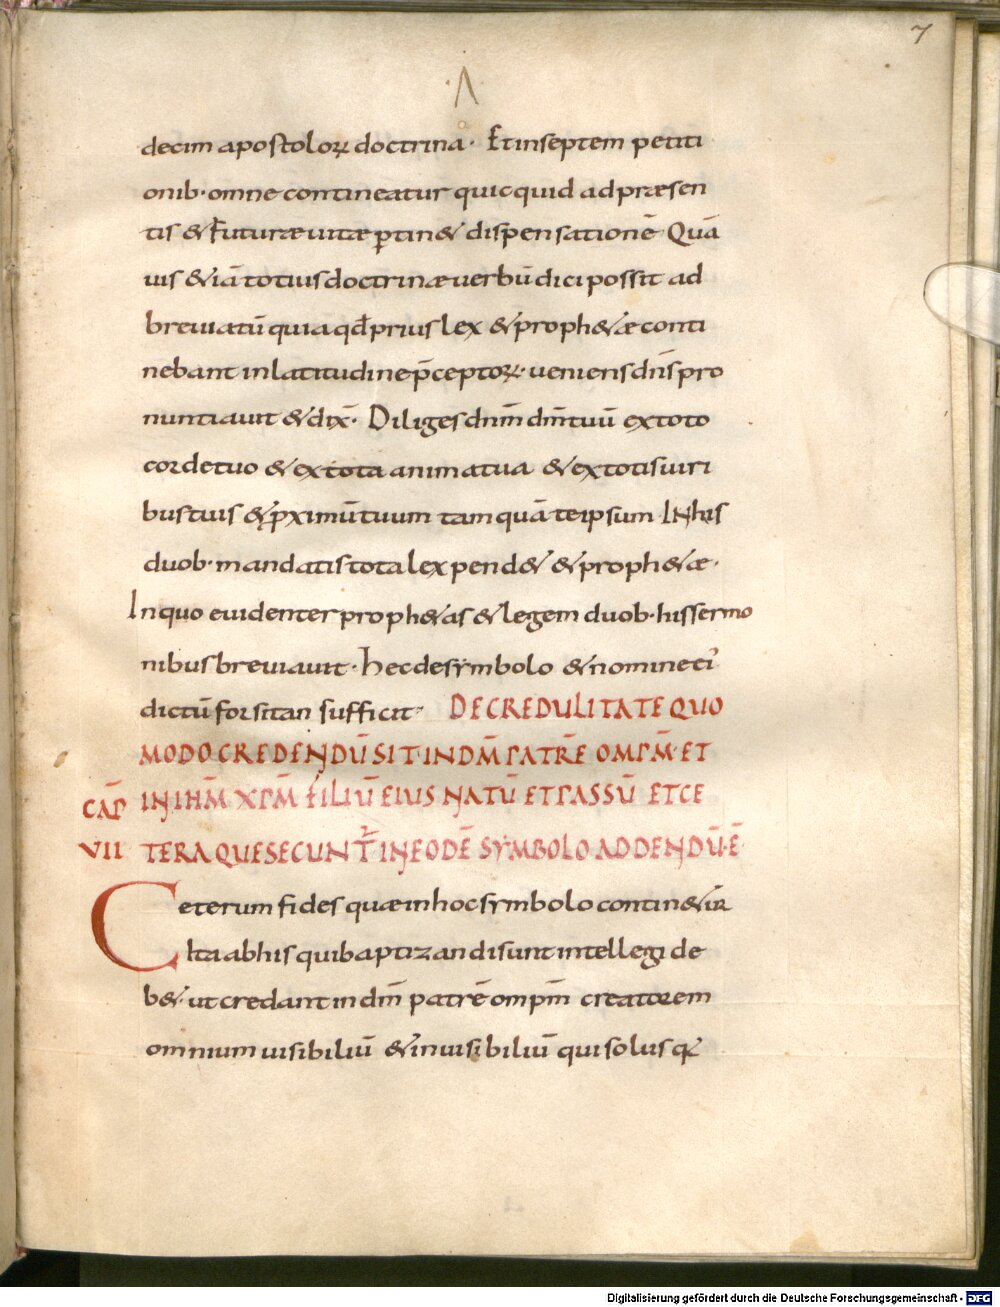 7
decim apostoloꝝ doctrina· Et in septem petiti
onib· omne contineatur quicquid ad præsen
tis & futuræ uitæ ꝑtin& dispensationē Quā
uis & iā totius doctrinæ uerbū dici possit ad
breuiatū quia qđ prius lex & proph&æ conti
nebant in latitudine p̄ceptoꝝ· ueniens dn̄s pro
nuntiauit & dix̄· Diliges dnm̄ dm̄ tuū ex toto
corde tuo & ex tota anima tua & ex totis uiri
bus tuis & ꝓximū tuum tam quā te ipsum IN his
duob· mandatis tota lex pend& & proph&æ·
In quo euidenter proph&as & legem duob· his sermo
nibus breuiauit· Hec de symbolo & nomine ei'
dictū forsitan sufficit· DE CREDULITATE QUO
MODO CREDENDŪ SIT· IN DM̄ PATRĒ OMPM̄· ET
CAP̄ IN IHM̄ XPM̄ FILIŪ EIUS NATŪ ET PASSŪ ET CE
VII TERA QUE SECUNT̄ IN EODĒ SYMBOLO ADDENDŪ· Ē
Ceterum fides quæ in hoc symbolo contin&ur
Ita ab his qui baptizandi sunt intellegi de
b&· ut credant in dm̄ patrē ompm̄ creatorem
omnium uisibiliū & inuisibiliū qui solus
Digitalisierung gefördert durch die Deutsche Forschungsgemeinschaft - DFG